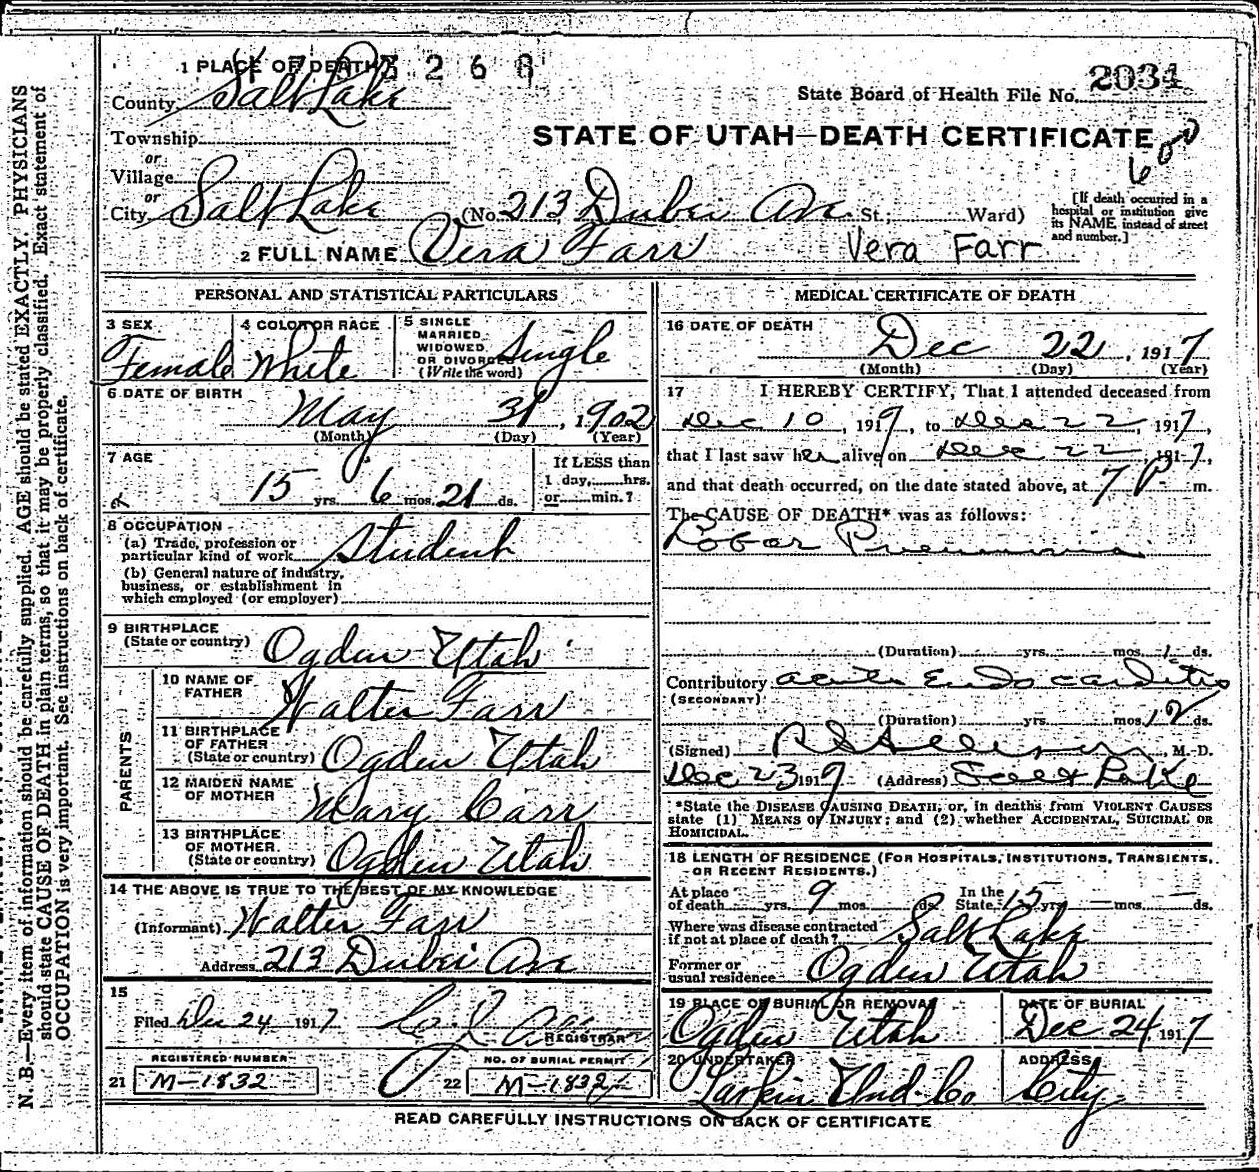 1 PLACE OF DEATH
State Board of Health File No. 2034
County Salt Lake
STATE OF UTAH—DEATH CERTIFICATE
Township
or
Village
or
City Salt Lake (No. 213 Ave St.; Ward)
[If death occurred in a hospital or institution give its NAME instead of street and number.]
2 FULL NAME Vera Farr Vera Farr
PERSONAL AND STATISTICAL PARTICULARS
3 SEX Female
4 COLOR OR RACE White
5 SINGLE MARRIED, WIDOWED, OR DIVORCED (Write the word) Single
6 DATE OF BIRTH May 31, 1902
(Month) (Day) (Year)
7 AGE 15 yrs. 6 mos. 21 ds.
If LESS than 1 day, hrs. or min.?
8 OCCUPATION
(a) Trade, profession or particular kind of work Student
(b) General nature of industry, business, or establishment in which employed (or employer)
9 BIRTHPLACE (State or country) Ogden Utah
PARENTS
10 NAME OF FATHER Walter Farr
11 BIRTHPLACE OF FATHER (State or country) Ogden Utah
12 MAIDEN NAME OF MOTHER Mary Carr
13 BIRTHPLACE OF MOTHER (State or country) Ogden Utah
14 THE ABOVE IS TRUE TO THE BEST OF MY KNOWLEDGE
(Informant) Walter Farr
Address 213 Ave
15
Filed Dec 24 1917 REGISTRAR
REGISTERED NUMBER NO. OF BURIAL PERMIT
21 M-1832 22 M-1832
MEDICAL CERTIFICATE OF DEATH
16 DATE OF DEATH Dec 22, 1917
(Month) (Day) (Year)
17 I HEREBY CERTIFY, That I attended deceased from
Dec 10, 1917, to Dec 22, 1917,
that I last saw her alive on Dec 22, 1917,
and that death occurred, on the date stated above, at 7 P m.
The CAUSE OF DEATH* was as follows:
Lobar Pneumonia
(Duration) yrs. mos. ds.
Contributory acute Endo carditis
(SECONDARY)
(Duration) yrs. mos. 12 ds.
(Signed) M. D.
Dec 23 1917 (Address) Salt Lake
*State the DISEASE CAUSING DEATH, or, in deaths from VIOLENT CAUSES
state (1) MEANS OF INJURY; and (2) whether ACCIDENTAL, SUICIDAL OR
HOMICIDAL.
18 LENGTH OF RESIDENCE (FOR HOSPITALS, INSTITUTIONS, TRANSIENTS, OR RECENT RESIDENTS.)
At place of death yrs. 9 mos. ds. In the State 15 yrs. — mos. — ds.
Where was disease contracted if not at place of death? Salt Lake
Former or usual residence Ogden Utah
19 PLACE OF BURIAL OR REMOVAL Ogden Utah
DATE OF BURIAL Dec 24, 1917
20 UNDERTAKER Larkin Und. Co
ADDRESS City
READ CAREFULLY INSTRUCTIONS ON BACK OF CERTIFICATE
N. B.—Every item of information should be carefully supplied. AGE should be stated EXACTLY. PHYSICIANS
should state CAUSE OF DEATH in plain terms, so that it may be properly classified. Exact statement of
OCCUPATION is very important. See instructions on back of certificate.